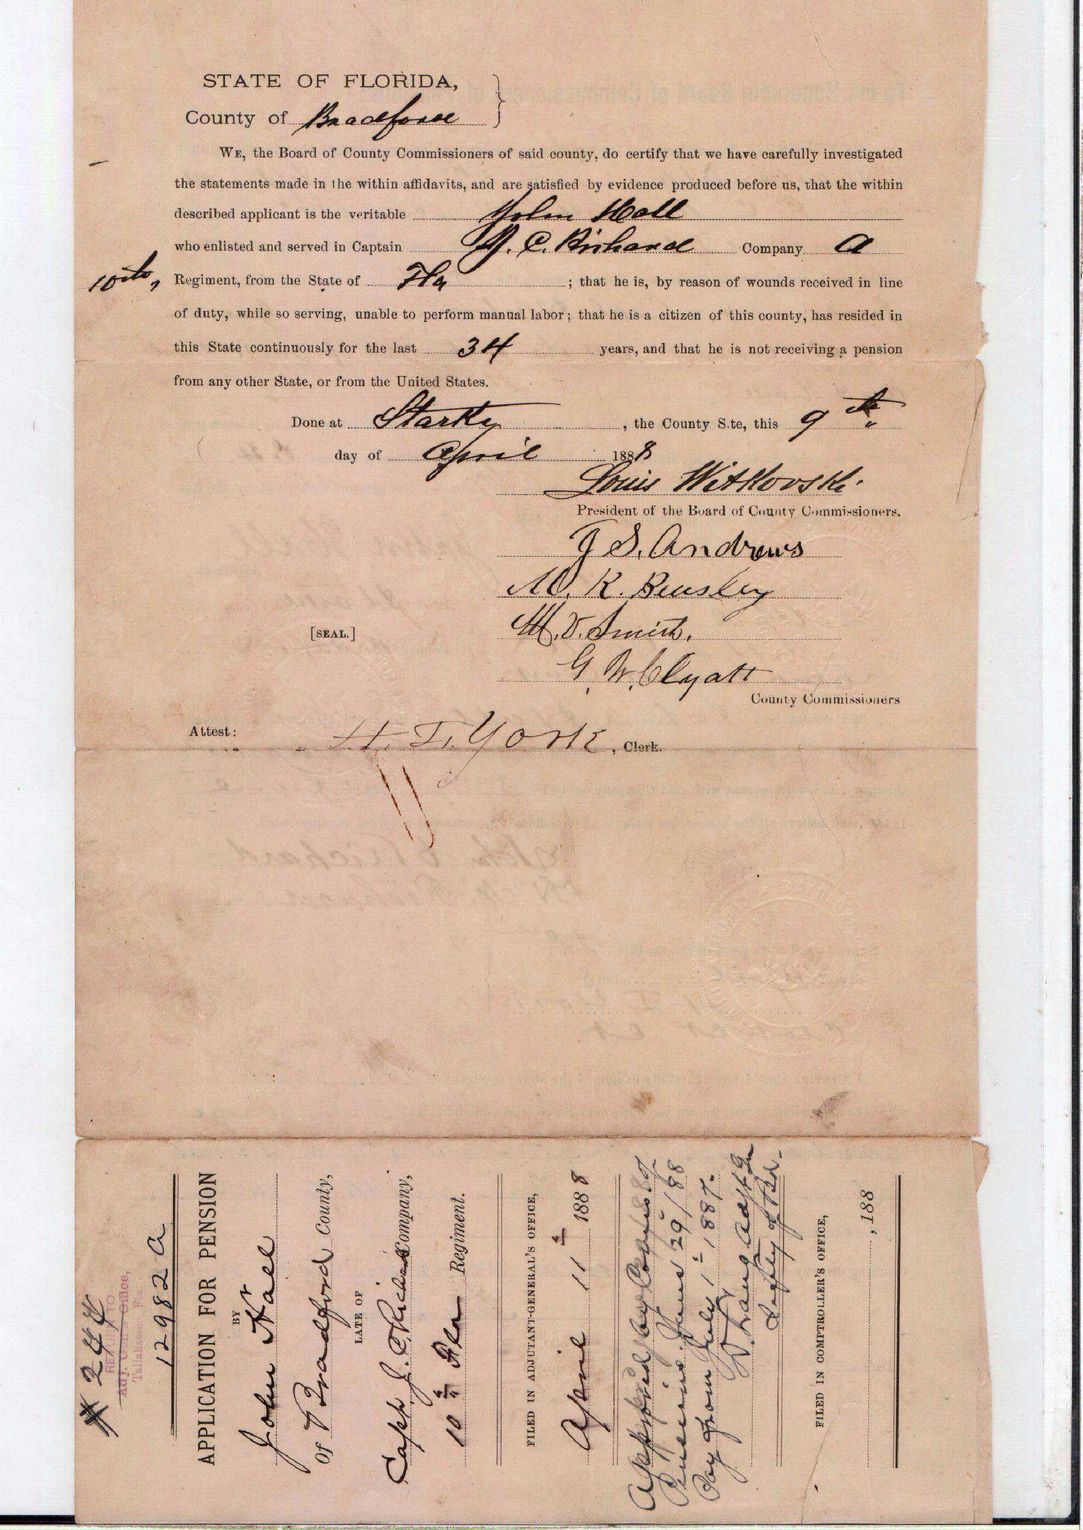 STATE OF FLORIDA,
County of Bradford
WE, the Board of County Commissioners of said county, do certify that we have carefully investigated
the statements made in the within affidavits, and are satisfied by evidence produced before us, that the within
described applicant is the veritable John Hall
who enlisted and served in Captain J. C. Richard Company A
10th, Regiment, from the State of Fla ; that he is, by reason of wounds received in line
of duty, while so serving, unable to perform manual labor; that he is a citizen of this county, has resided in
this State continuously for the last 34 years, and that he is not receiving a pension
from any other State, or from the United States.
Done at Starke , the County S.te, this 9th
day of April 1888
Louis Witkovski
President of the Board of County Commissioners.
J S. Andrews
M. K. Beusley
[SEAL.] M. V. Smith.
G. W. Clyatt
County Commissioners
Attest: H. T. York, Clerk.
# 244
RETURN TO
Adj. General's Office,
Tallahassee Fla.
12982 A
APPLICATION FOR PENSION
BY
John Hall
of Bradford County,
LATE OF
Capt J. C. Richard Company,
10th Fla Regiment.
FILED IN ADJUTANT-GENERAL'S OFFICE,
April 11 1888
Approved by
Pensions. June 29/88
Pay from July 1st 1887.
D. Lang Adjt Gn
Secty of Bd.
FILED IN COMPTROLLER'S OFFICE,
, 188